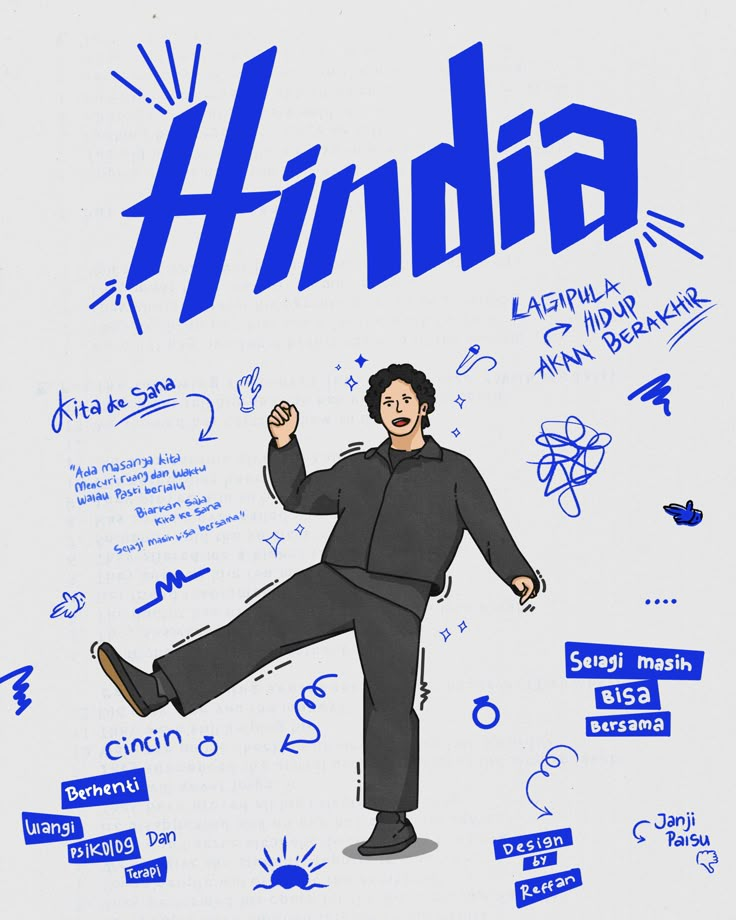 Hindia
LAGIPULA
HIDUP
AKAN BERAKHIR
Kita ke Sana
"Ada masanya kita
Mencuri ruang dan waktu
Walau Pasti berlalu
Biarkan Saja
Kita ke Sana
Selagi masih bisa bersama"
Selagi masih
Bisa
Bersama
Cincin
Berhenti
Ulangi
Psikolog Dan
Terapi
Design
by
Reffan
Janji
Palsu